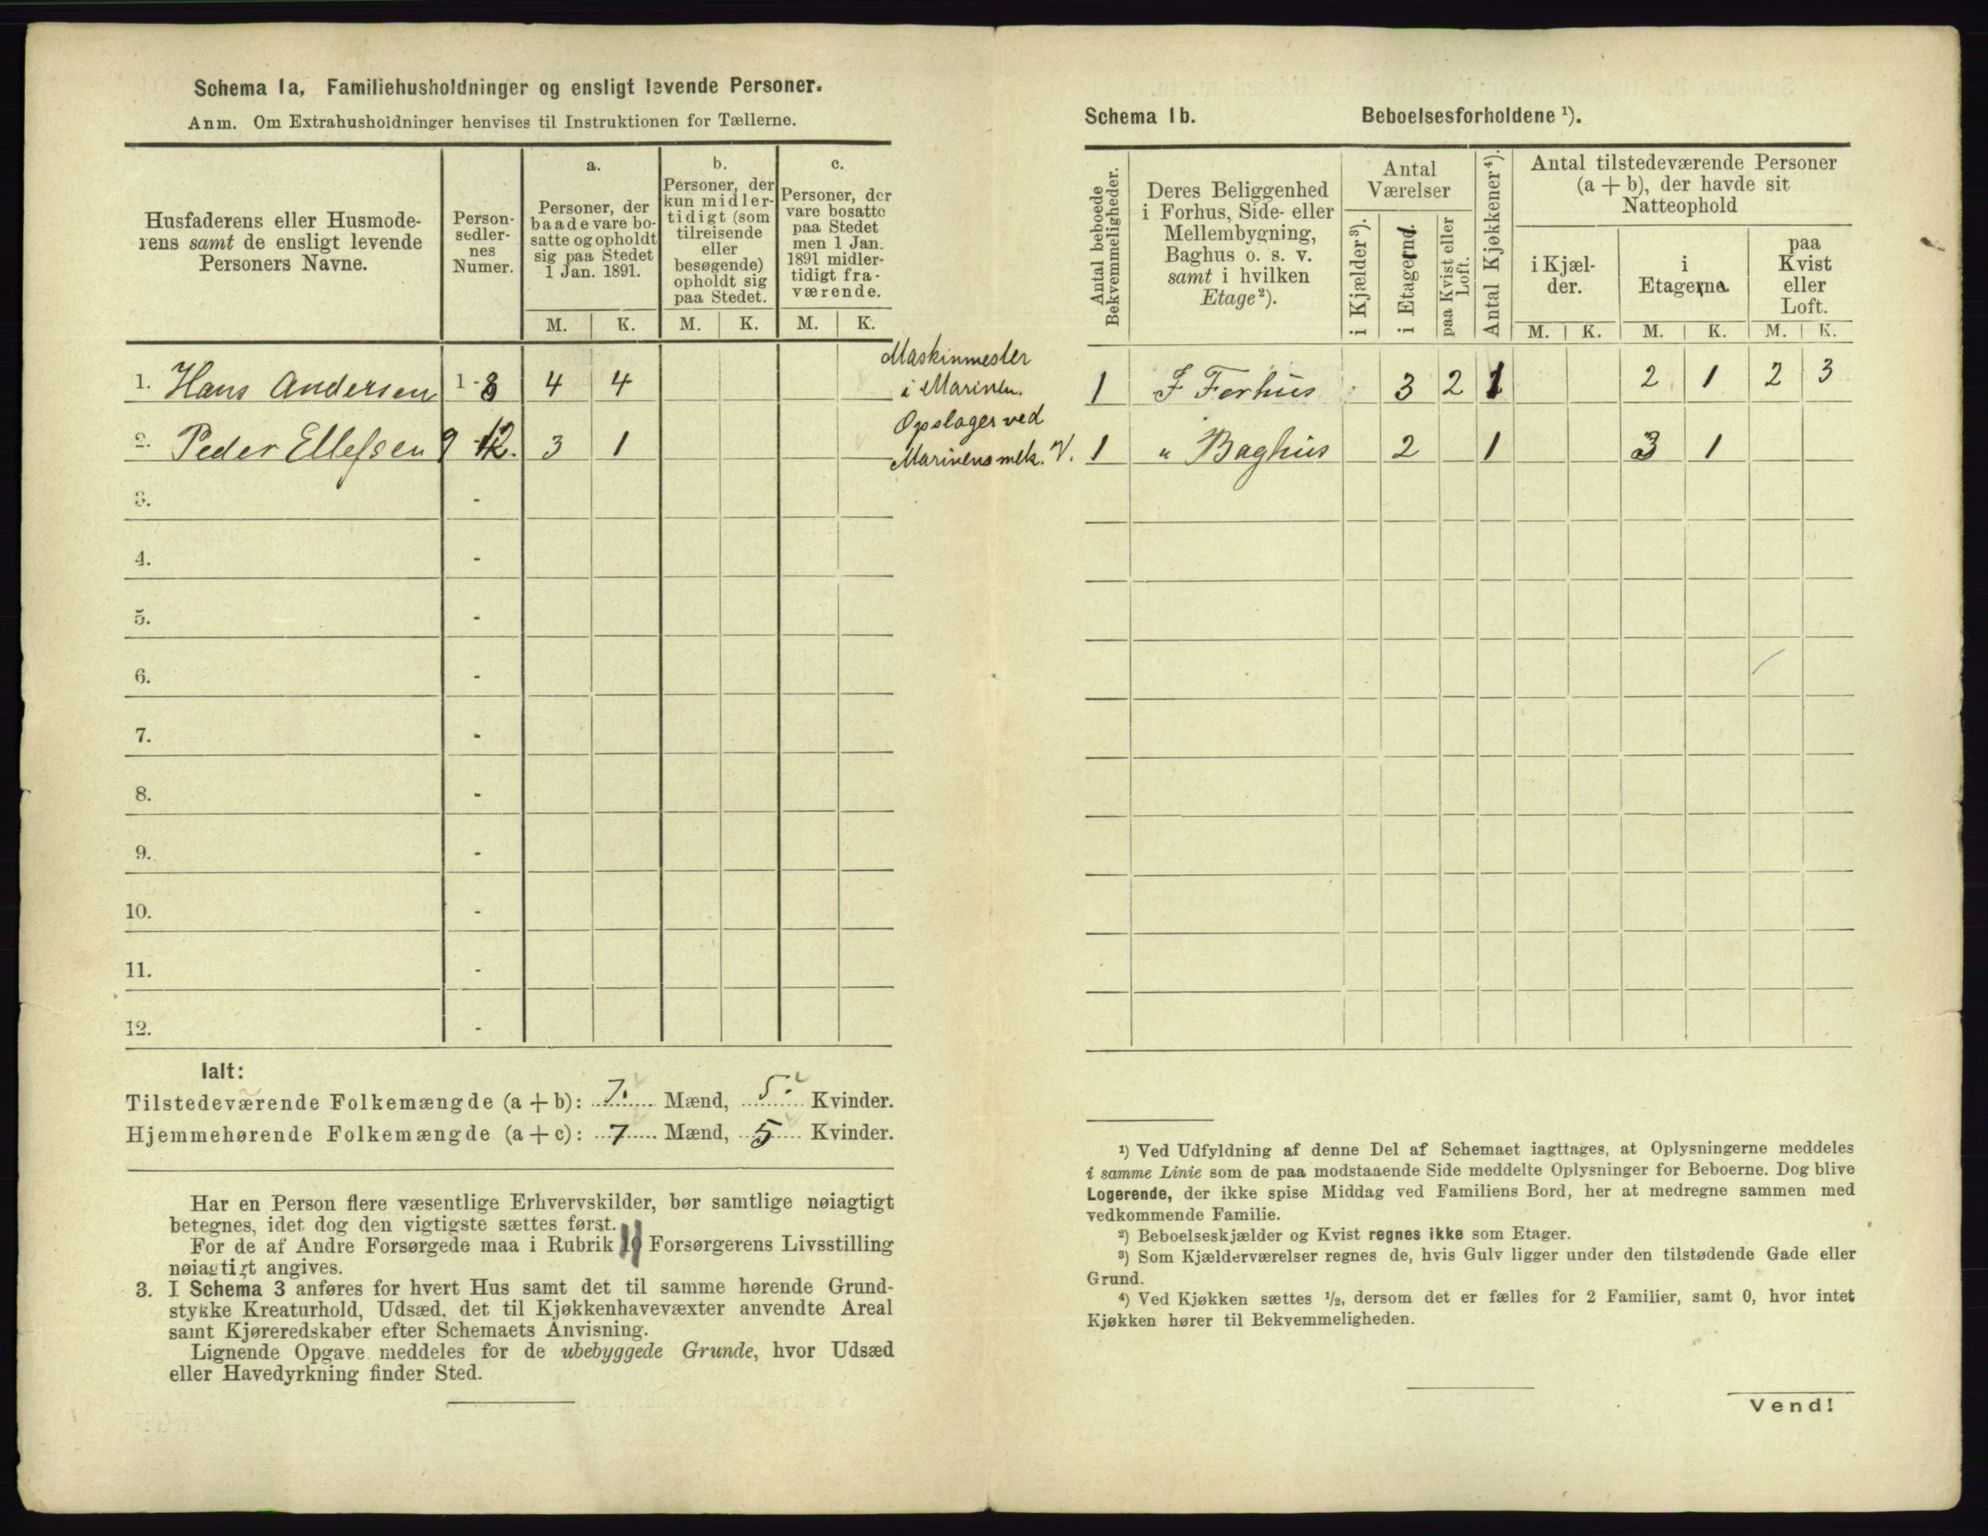 Schema 1a, Familiehusholdninger og ensligt levende Personer.
Anm. Om Extrahusholdninger henvises til Instruktionen for Tællerne.
Husfaderens eller Husmoderens samt de ensligt levende Personers Navne.
Personsedlernes Numer.
a.
Personer, der baade vare bosatte og opholdt sig paa Stedet 1 Jan. 1891.
b.
Personer, der kun midlertidigt (som tilreisende eller besøgende) opholdt sig paa Stedet.
c.
Personer, der vare bosatte paa Stedet men 1 Jan. 1891 midlertidigt fraværende.
M. K. M. K. M. K.
1. Hans Andersen 1 - 8 4 4 Maskinmester i Marinen.
2. Peder Ellefsen 9 - 12. 3 1 Opslager ved Marinens mek. V.
3. -
4. -
5. -
6. -
7. -
8. -
9. -
10. -
11. -
12. -
Ialt:
Tilstedeværende Folkemængde (a + b): 7. Mænd, 5. Kvinder.
Hjemmehørende Folkemængde (a + c): 7 Mænd, 5 Kvinder.
Har en Person flere væsentlige Erhvervskilder, bør samtlige nøiagtigt
betegnes, idet dog den vigtigste sættes først.
For de af Andre Forsørgede maa i Rubrik Forsørgerens Livsstilling
nøiagtigt angives.
3. I Schema 3 anføres for hvert Hus samt det til samme hørende Grund-
stykke Kreaturhold, Udsæd, det til Kjøkkenhavevæxter anvendte Areal
samt Kjøreredskaber efter Schemaets Anvisning.
Lignende Opgave meddeles for de ubebyggede Grunde, hvor Udsæd
eller Havedyrkning finder Sted.
Schema 1b. Beboelsesforholdene ¹).
Antal beboede Bekvemmeligheder.
Deres Beliggenhed i Forhus, Side- eller Mellembygning, Baghus o. s. v. samt i hvilken Etage²).
Antal Værelser
i Kjælder³).
i Etagerne.
paa Kvist eller Loft.
Antal Kjøkkener⁴).
Antal tilstedeværende Personer (a + b), der havde sit Natteophold
i Kjælder.
i Etagerne.
paa Kvist eller Loft.
M. K. M. K. M. K.
1 I Forhus 3 2 1 2 1 2 3
1 " Baghus 2 1 3 1
¹) Ved Udfyldning af denne Del af Schemaet iagttages, at Oplysningerne meddeles
i samme Linie som de paa modstaaende Side meddelte Oplysninger for Beboerne. Dog blive
Logerende, der ikke spise Middag ved Familiens Bord, her at medregne sammen med
vedkommende Familie.
²) Beboelseskjælder og Kvist regnes ikke som Etager.
³) Som Kjælderværelser regnes de, hvis Gulv ligger under den tilstødende Gade eller
Grund.
⁴) Ved Kjøkken sættes ½, dersom det er fælles for 2 Familier, samt 0, hvor intet
Kjøkken hører til Bekvemmeligheden.
Vend!